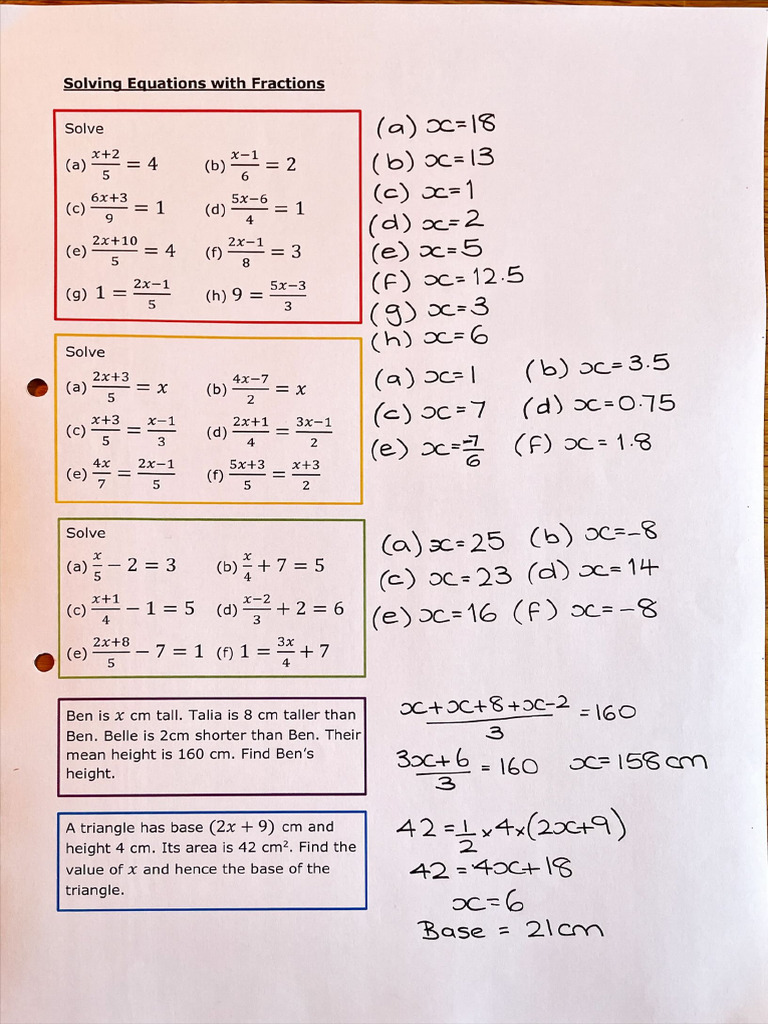 Solving Equations with Fractions
Solve
(a) (x+2)/5 = 4 (b) (x−1)/6 = 2
(c) (6x+3)/9 = 1 (d) (5x−6)/4 = 1
(e) (2x+10)/5 = 4 (f) (2x−1)/8 = 3
(g) 1 = (2x−1)/5 (h) 9 = (5x−3)/3
(a) x=18
(b) x=13
(c) x=1
(d) x=2
(e) x=5
(f) x=12.5
(g) x=3
(h) x=6
Solve
(a) (2x+3)/5 = x (b) (4x−7)/2 = x
(c) (x+3)/5 = (x−1)/3 (d) (2x+1)/4 = (3x−1)/2
(e) 4x/7 = (2x−1)/5 (f) (5x+3)/5 = (x+3)/2
(a) x=1 (b) x=3.5
(c) x=7 (d) x=0.75
(e) x=-7/6 (f) x=1.8
Solve
(a) x/5 − 2 = 3 (b) x/4 + 7 = 5
(c) (x+1)/4 − 1 = 5 (d) (x−2)/3 + 2 = 6
(e) (2x+8)/5 − 7 = 1 (f) 1 = 3x/4 + 7
(a) x=25 (b) x=-8
(c) x=23 (d) x=14
(e) x=16 (f) x=-8
Ben is x cm tall. Talia is 8 cm taller than
Ben. Belle is 2cm shorter than Ben. Their
mean height is 160 cm. Find Ben's
height.
(x+x+8+x-2)/3 = 160
(3x+6)/3 = 160 x=158cm
A triangle has base (2x + 9) cm and
height 4 cm. Its area is 42 cm². Find the
value of x and hence the base of the
triangle.
42 = 1/2 × 4 × (2x+9)
42 = 4x+18
x=6
Base = 21cm